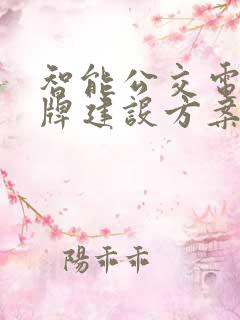 智能公交電
牌建設方案
陽乖乖